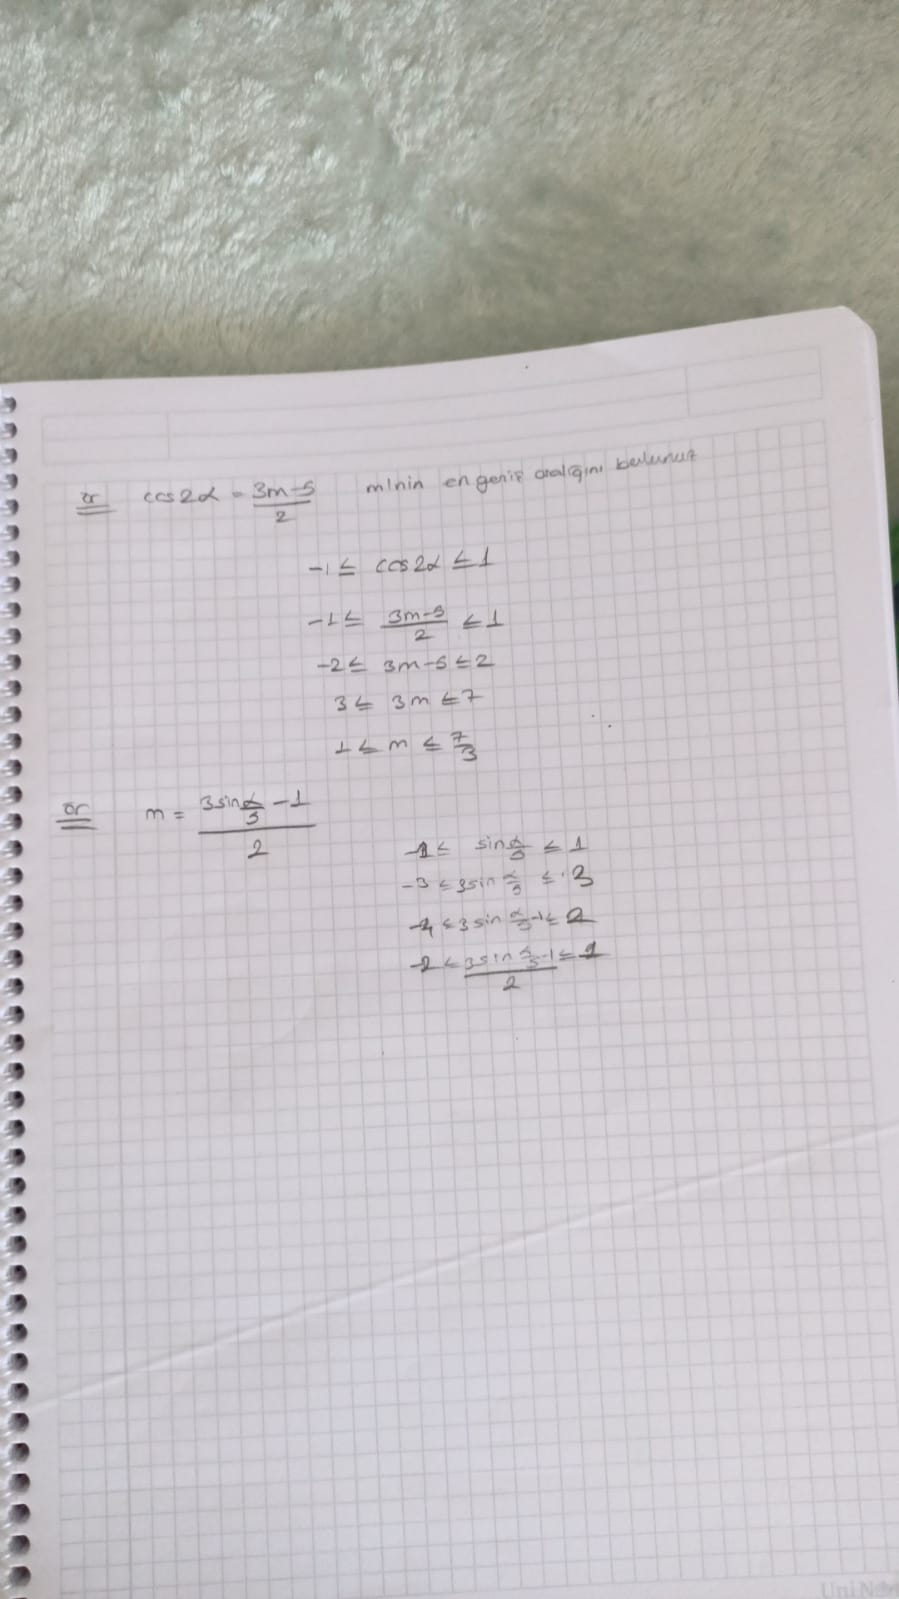 ör cos2α = 3m-5/2 m'nin en geniş aralığını bulunuz
-1 ≤ cos2α ≤ 1
-1 ≤ 3m-5/2 ≤ 1
-2 ≤ 3m-5 ≤ 2
3 ≤ 3m ≤ 7
1 ≤ m ≤ 7/3
ör m = 3sin α/3 -1/2
-1 ≤ sin α/3 ≤ 1
-3 ≤ 3sin α/3 ≤ 3
-4 ≤ 3sin α/3 -1 ≤ 2
-2 ≤ 3sin α/3 -1/2 ≤ 1